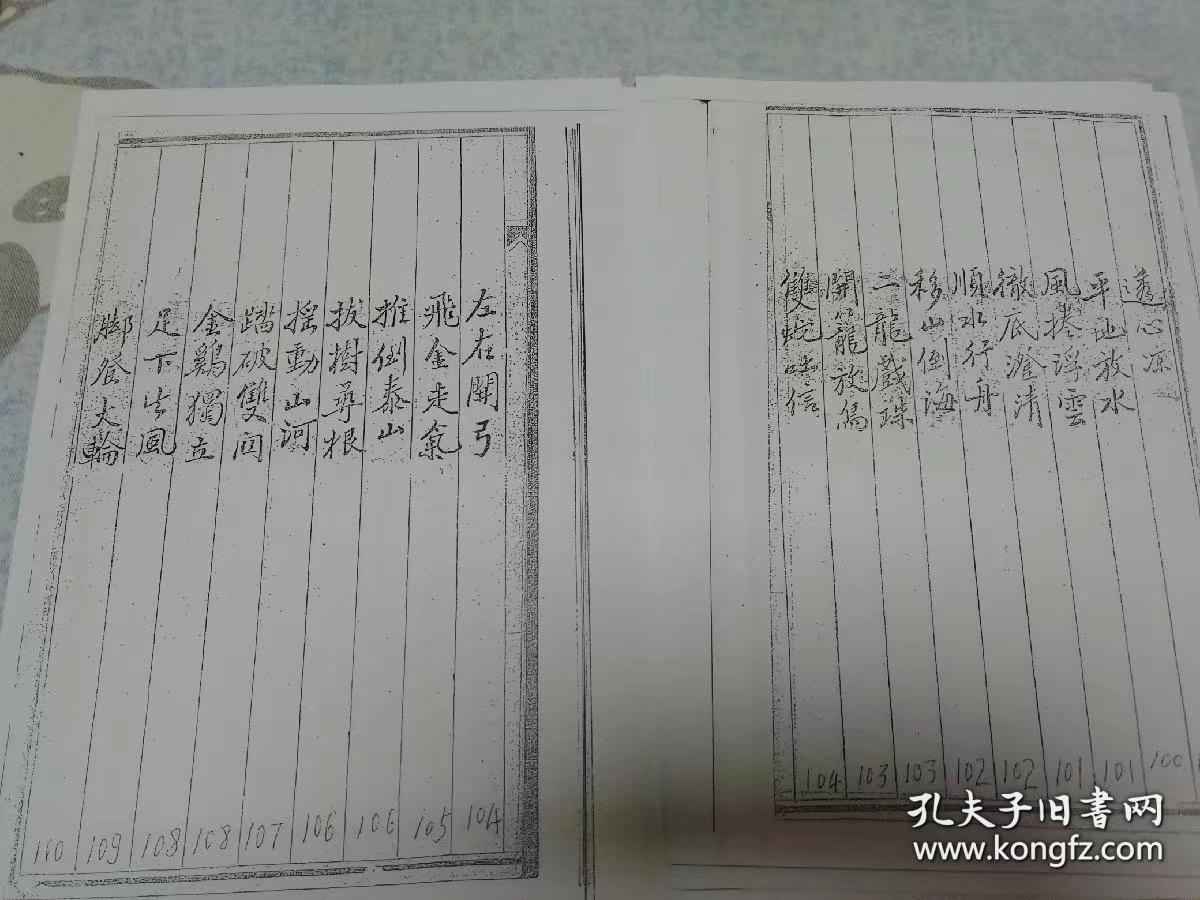 透心凉 100
平地放水 101
風捲浮雲 101
徹底澄清 102
順水行舟 102
移山倒海 103
二龍戲珠 103
開籠放鴿 104
雙蛇
信
左右開弓 104
飛金走氣 105
推倒泰山 106
拔樹尋根 106
搖動山河 107
踏破雙
108
金鷄獨立 108
足下生風 109
脚登大輪 110
八
孔夫子旧书网
www.kongfz.com